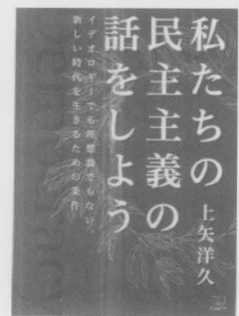 私たちの
民主主義の
話をしよう
イデオロギーでも理想論でもない、
新しい時代を生きるための条件
上矢洋久